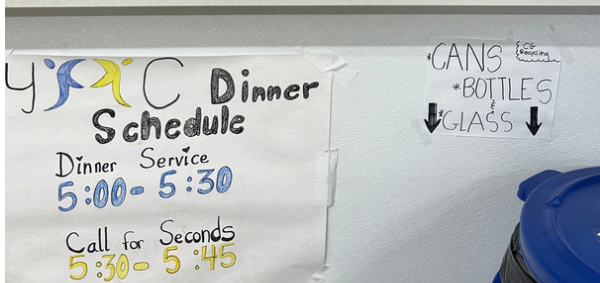 Y C Dinner
Schedule
Dinner Service
5:00- 5:30
Call for Seconds
5:30- 5:45
*CANS
{CG Recycling
*BOTTLES
&
*GLASS